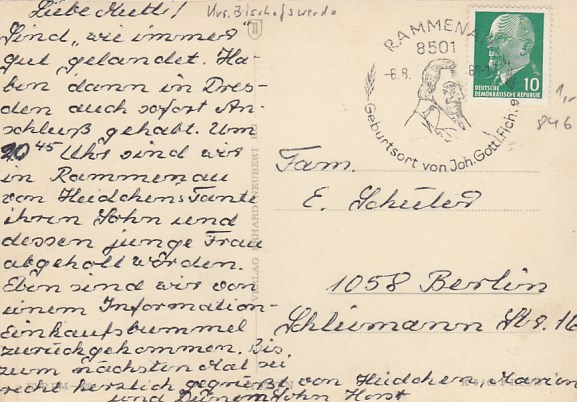 Liebe Mutti!
Krs. Bischofswerda
Sind „wie immer"
gut gelandet. Ha-
ben dann in Dres-
den auch sofort An-
schluß gehabt. Um
20 45 Uhr sind wir
in Rammenau
von Heidchens Tante
ihren Sohn und
dessen junge Frau
abgeholt worden.
Eben sind wir von
einem Information-
Einkaufsbummel
zurückgekommen. Bis
zum nächsten Mal sei
recht herzlich gegrüßt von Heidchen, Marion
und Deinem Sohn Horst
RAMMENAU
8501
-6.8.
Geburtsort von Joh. Gottl. Fich.e
10
DEUTSCHE
DEMOKRATISCHE REPUBLIK
1,-
846
Fam.
E. Schuler
1058 Berlin
Schliemann Str. 16
VERLAG ERHARD NEUBERT KG